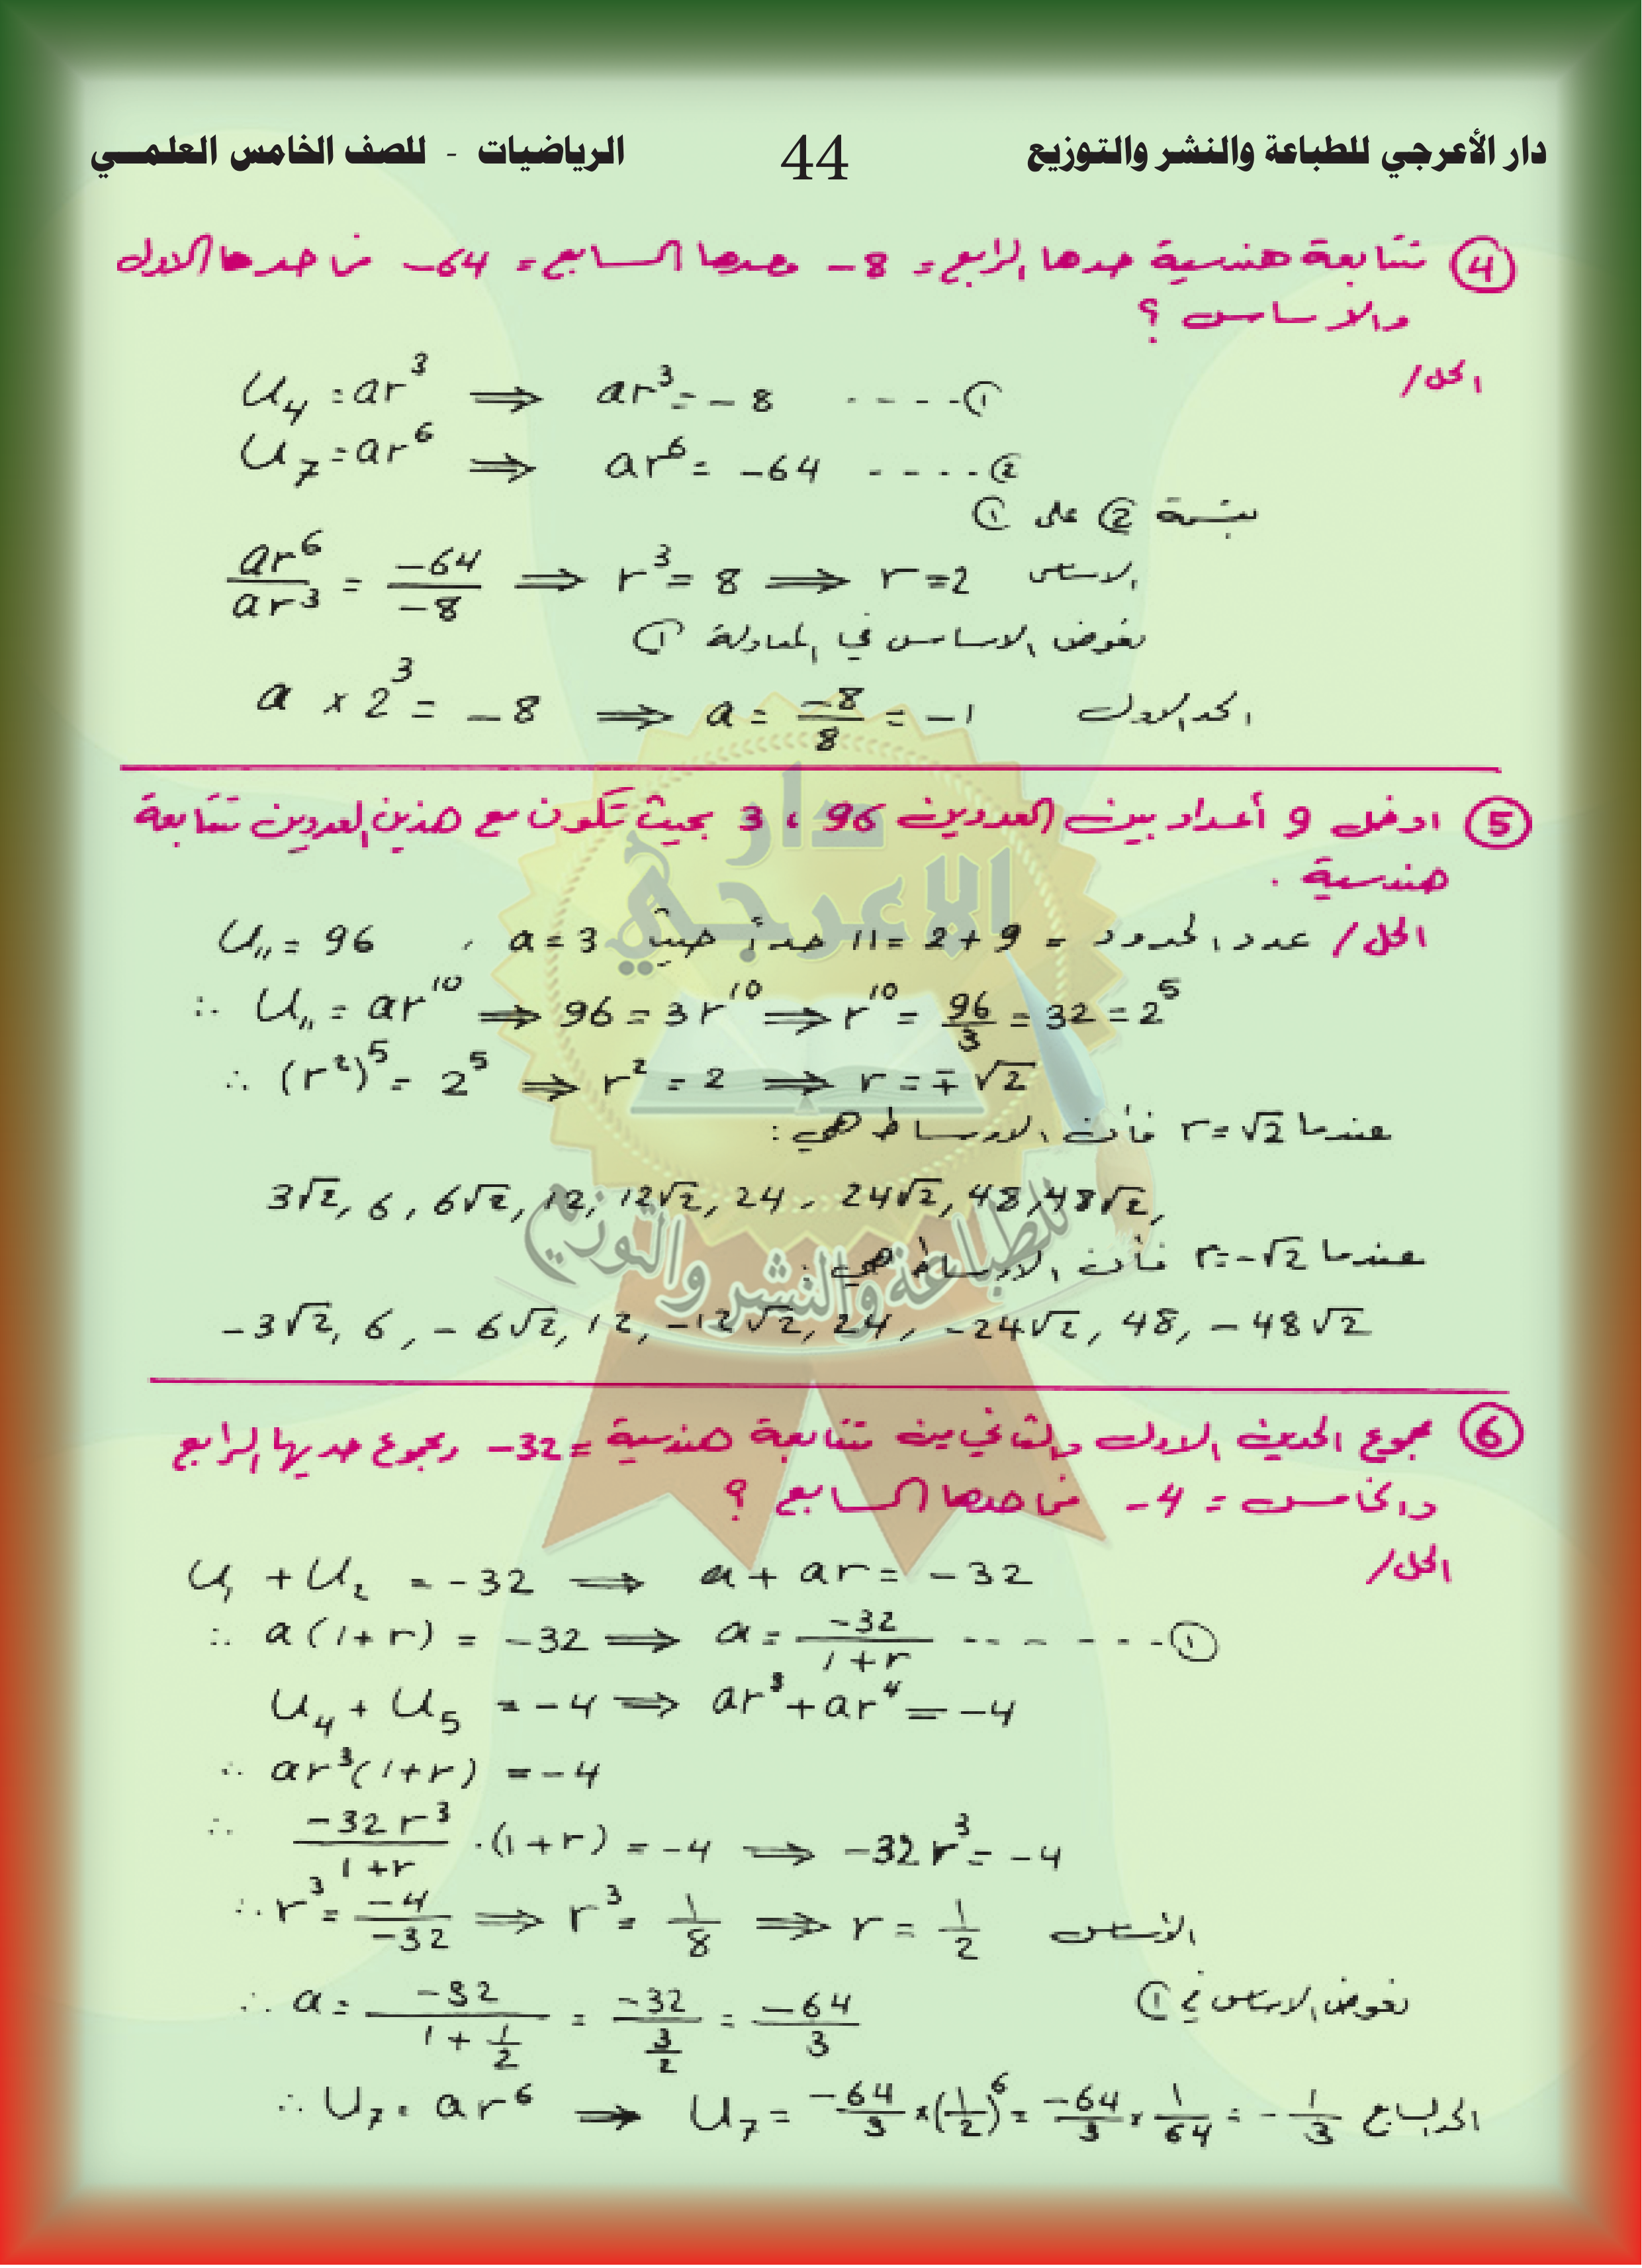 دار الأعرجي للطباعة والنشر والتوزيع 44 الرياضيات - للصف الخامس العلمـــي
④ متتابعة هندسية حدها الرابع = 8- وحدها السابع = 64- فما حدها الاول
والاساس ؟
الحل/
U₄ = ar³ ⟹ ar³ = -8 ----①
U₇ = ar⁶ ⟹ ar⁶ = -64 ----②
بقسمة ② على ①
ar⁶/ar³ = -64/-8 ⟹ r³ = 8 ⟹ r = 2 الاساس
نعوض الاساس في المعادلة ①
a × 2³ = -8 ⟹ a = -8/8 = -1 الحد الاول
⑤ ادخل 9 أعداد بين العددين 96 ، 3 بحيث تكون مع هذين العددين متتابعة
هندسية .
الحل/ عدد الحدود = 9 + 2 = 11 حداً حيث a = 3 ، U₁₁ = 96
∴ U₁₁ = ar¹⁰ ⟹ 96 = 3r¹⁰ ⟹ r¹⁰ = 96/3 = 32 = 2⁵
∴ (r²)⁵ = 2⁵ ⟹ r² = 2 ⟹ r = ∓√2
عندما r = √2 فأن الاوساط هي :
3√2, 6, 6√2, 12, 12√2, 24, 24√2, 48, 48√2,
عندما r = -√2 فأن الاوساط هي :
-3√2, 6, -6√2, 12, -12√2, 24, -24√2, 48, -48√2
⑥ مجموع الحدين الاول والثاني من متتابعة هندسية = 32- ومجموع حديها الرابع
والخامس = 4- فما حدها السابع ؟
الحل/
U₁ + U₂ = -32 ⟹ a + ar = -32
∴ a(1+r) = -32 ⟹ a = -32/(1+r) -------①
U₄ + U₅ = -4 ⟹ ar³ + ar⁴ = -4
∴ ar³(1+r) = -4
∴ -32r³/(1+r) ·(1+r) = -4 ⟹ -32r³ = -4
∴ r³ = -4/-32 ⟹ r³ = 1/8 ⟹ r = 1/2 الأساس
نعوض الاساس في ①
∴ a = -32/(1 + 1/2) = -32/(3/2) = -64/3
∴ U₇ = ar⁶ ⟹ U₇ = -64/3 × (1/2)⁶ = -64/3 × 1/64 = -1/3 الحد السابع
دار
الاعرجي
للطباعة والنشر والتوزيع